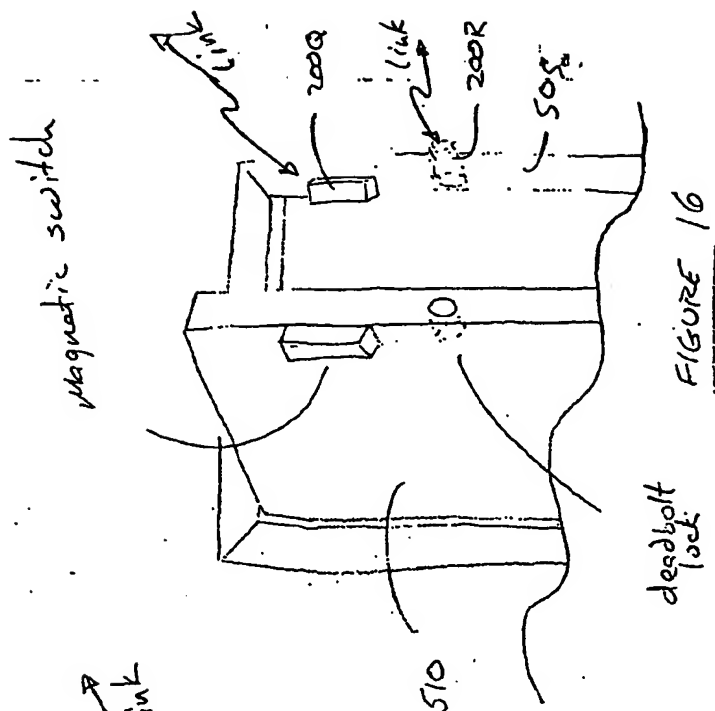 Magnetic switch
Link
200Q
Link
200R
505
510
deadbolt
lock
FIGURE 16